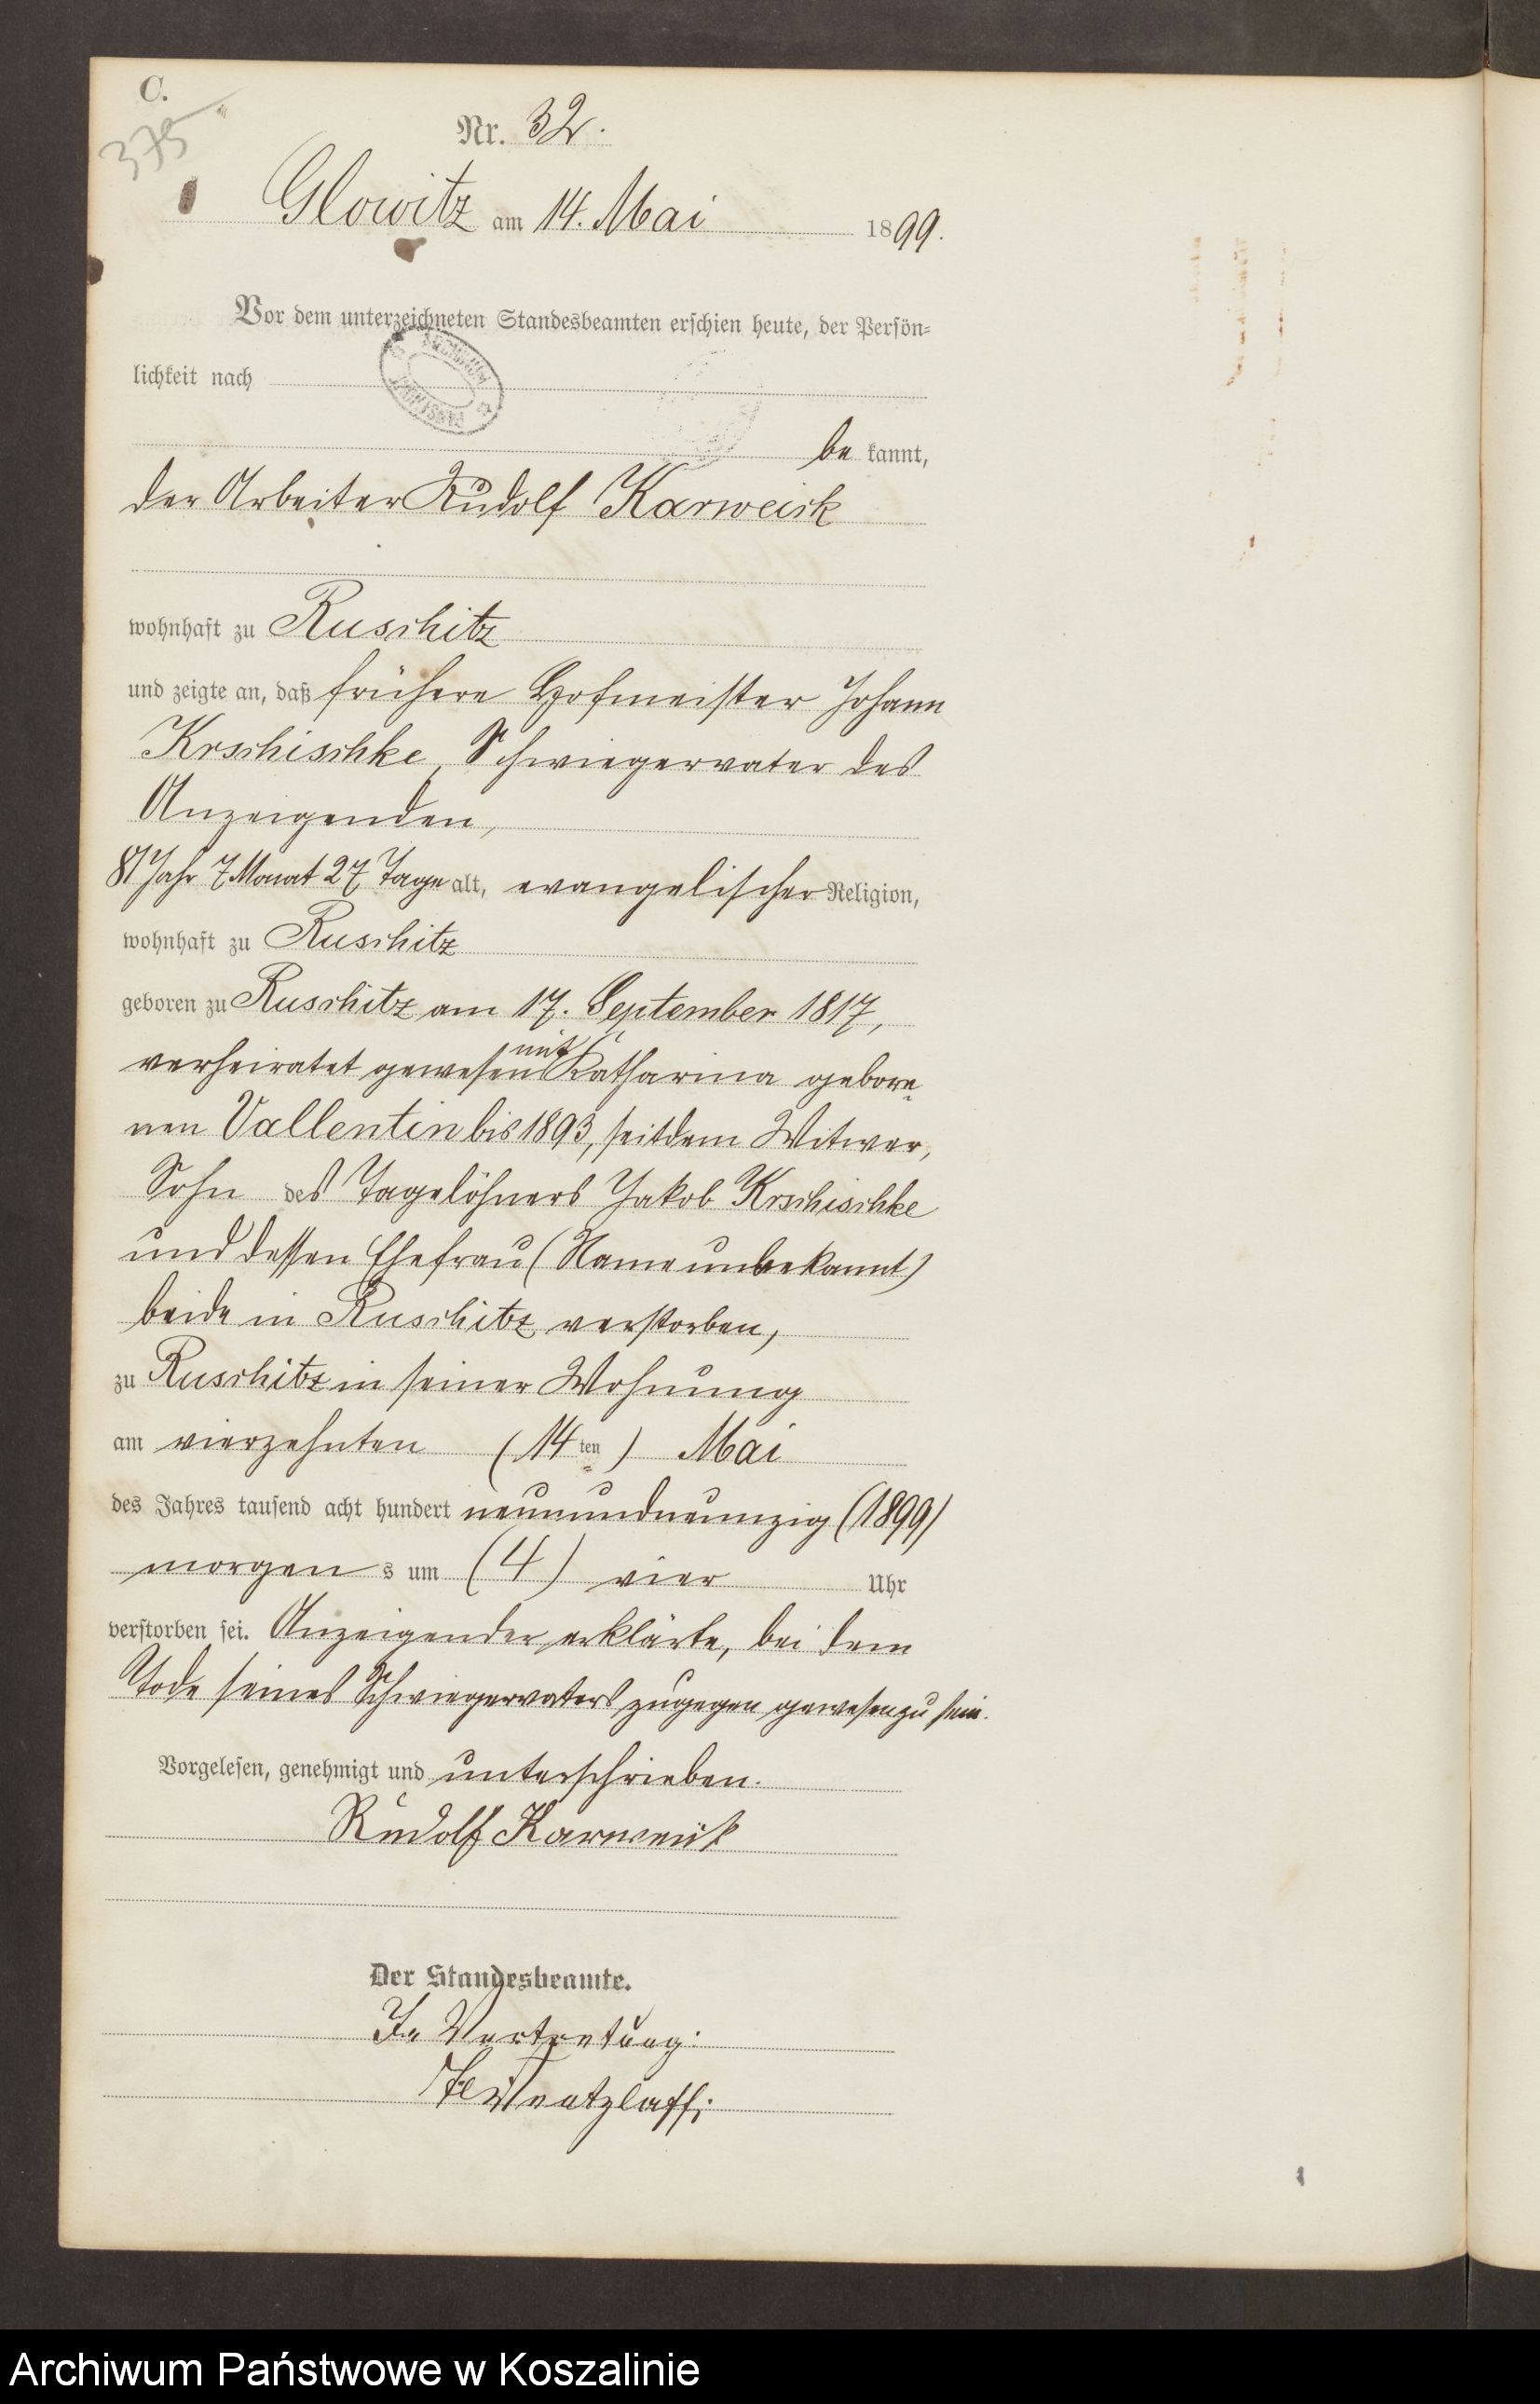 C.
375
Nr. 32.
Glowitz am 14. Mai 1899.
Vor dem unterzeichneten Standesbeamten erschien heute, der Persön-
lichkeit nach
be kannt,
der Arbeiter Rudolf Karweick
wohnhaft zu Ruschitz
und zeigte an, daß frühere Hofmeister Johann
Krschischke, Schwiegervater des
Anzeigenden,
81 Jahr 7 Monat 27 Tage alt, evangelischer Religion,
wohnhaft zu Ruschitz
geboren zu Ruschitz am 17. September 1817,
verheiratet gewesen mit Katharina gebore-
nen Vallentin bis 1893, seitdem Witwer,
Sohn des Tagelöhners Jakob Krschischke
und dessen Ehefrau (Name unbekannt)
beide in Ruschitz verstorben,
zu Ruschitz in seiner Wohnung
am vierzehnten (14ten) Mai
des Jahres tausend acht hundert neunundneunzig (1899)
morgen s um (4) vier Uhr
verstorben sei. Anzeigender erklärte, bei dem
Tode seines Schwiegervaters zugegen gewesen zu sein.
Vorgelesen, genehmigt und unterschrieben.
Rudolf Karweick
Der Standesbeamte.
In Vertretung:
Wentzlaff;
Archiwum Państwowe w Koszalinie